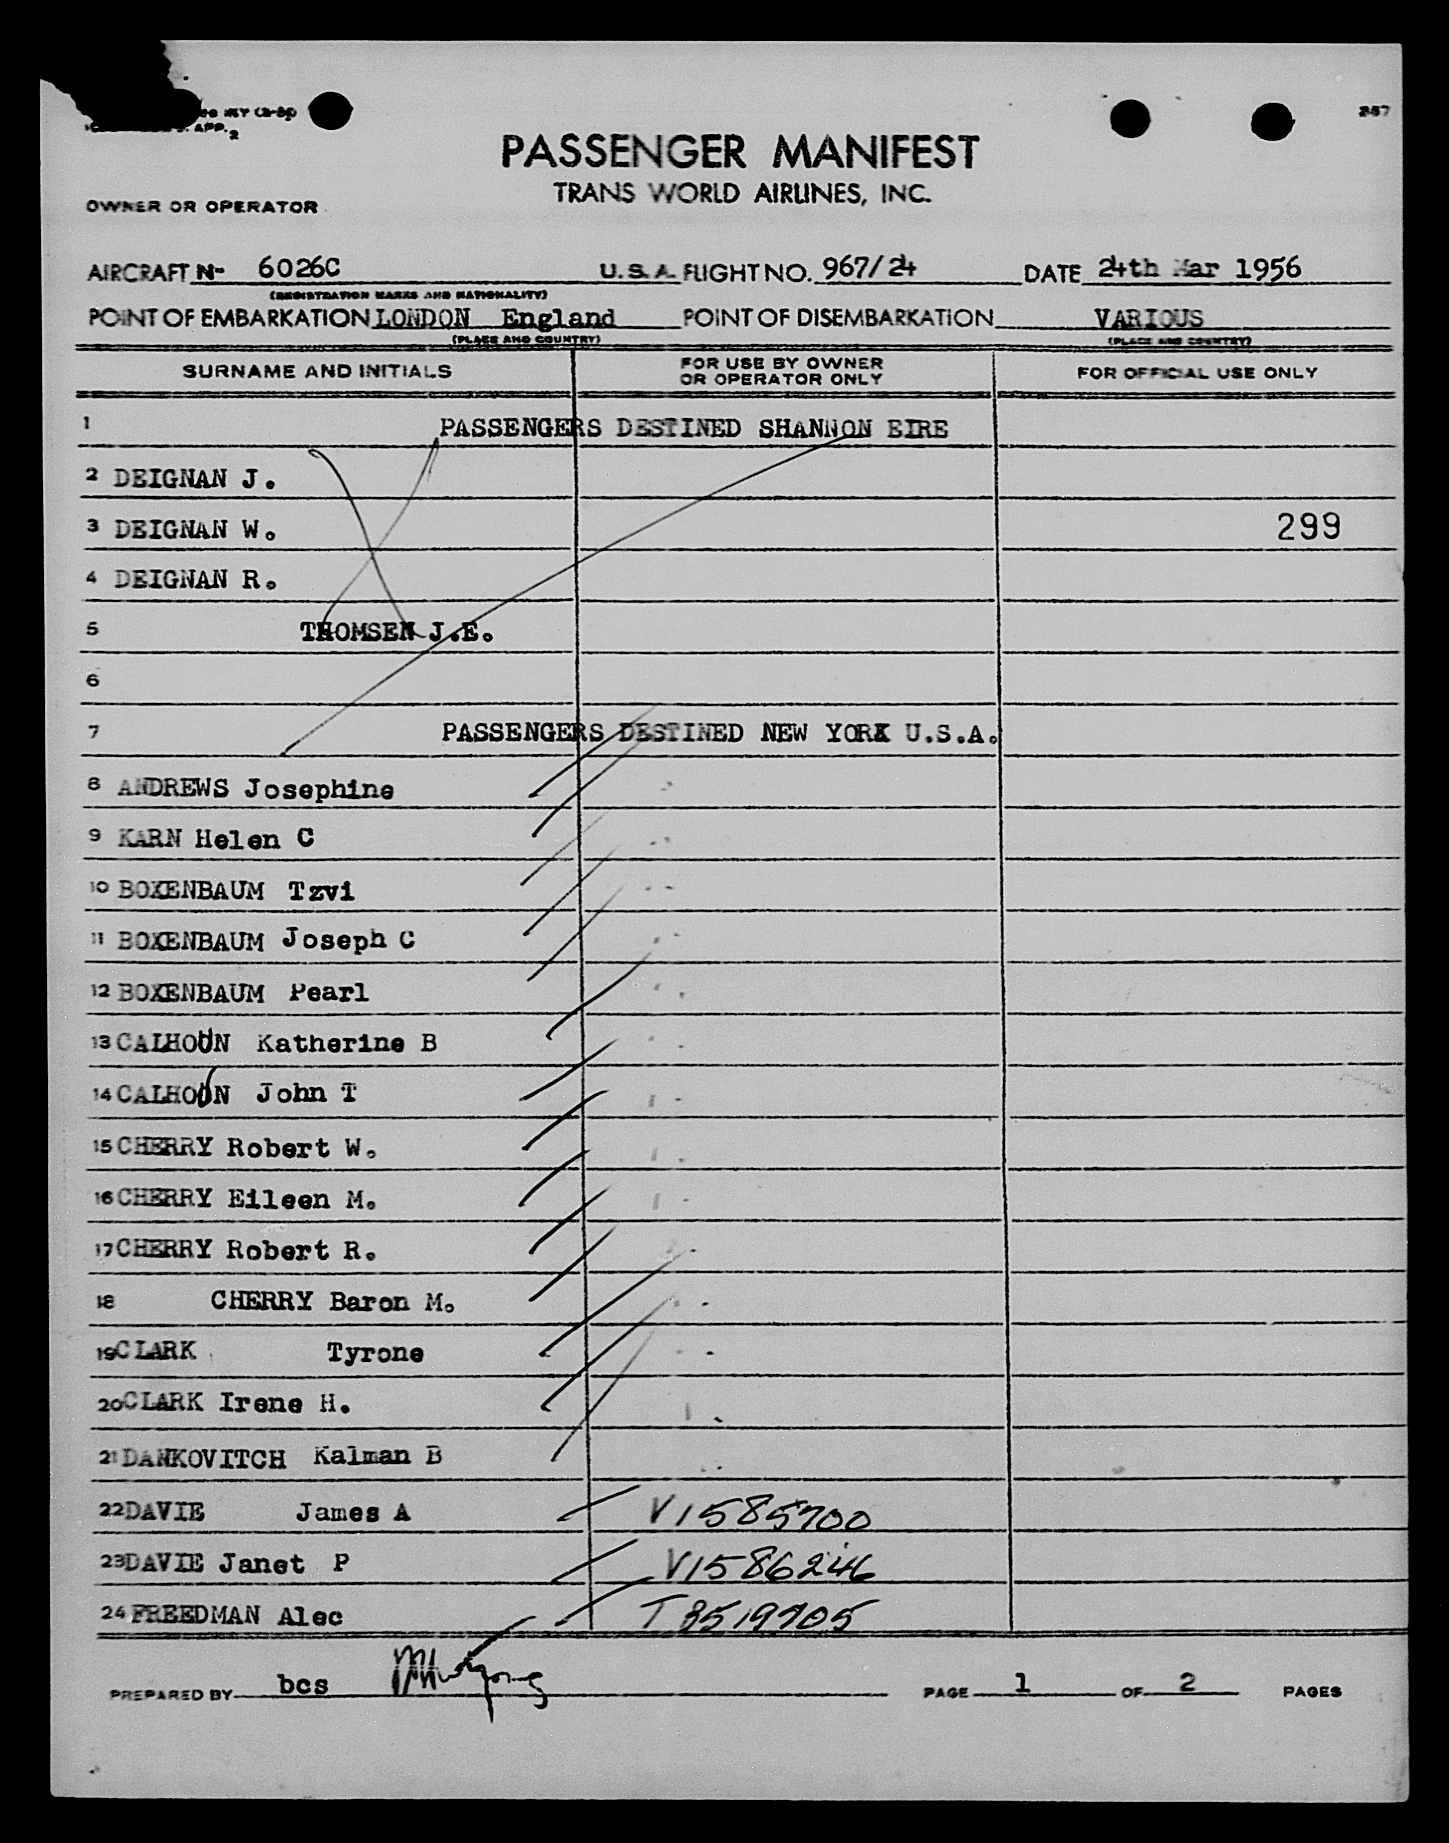 APP. 2
267
PASSENGER MANIFEST
TRANS WORLD AIRLINES, INC.
OWNER OR OPERATOR
AIRCRAFT N- 6026C U.S.A. FLIGHT NO. 967/24 DATE 24th Mar 1956
(REGISTRATION MARKS AND NATIONALITY)
POINT OF EMBARKATION LONDON England POINT OF DISEMBARKATION VARIOUS
(PLACE AND COUNTRY) (PLACE AND COUNTRY)
SURNAME AND INITIALS FOR USE BY OWNER OR OPERATOR ONLY FOR OFFICIAL USE ONLY
1 PASSENGERS DESTINED SHANNON EIRE
2 DEIGNAN J.
3 DEIGNAN W. 299
4 DEIGNAN R.
5 THOMSEN J.E.
6
7 PASSENGERS DESTINED NEW YORK U.S.A.
8 ANDREWS Josephine
9 KARN Helen C
10 BOXENBAUM Tzvi
11 BOXENBAUM Joseph C
12 BOXENBAUM Pearl
13 CALHOUN Katherine B
14 CALHOUN John T
15 CHERRY Robert W.
16 CHERRY Eileen M.
17 CHERRY Robert R.
18 CHERRY Baron M.
19 CLARK Tyrone
20 CLARK Irene H.
21 DANKOVITCH Kalman B
22 DAVIE James A V1585700
23 DAVIE Janet P V1586246
24 FREEDMAN Alec T8519705
PREPARED BY bcs PAGE 1 OF 2 PAGES